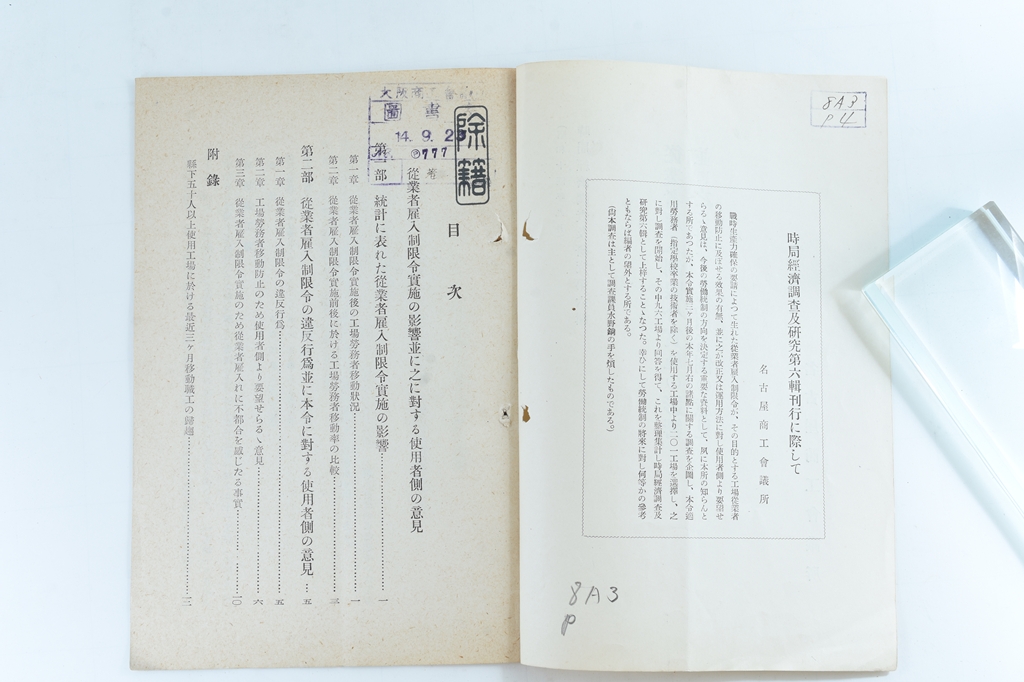 8A3
P4
時局經濟調査及硏究第六輯刊行に際して
名古屋商工會議所
戰時生產力確保の要請によつて生れた從業者雇入制限令が、その目的とする工場從業者
の移動防止に及ぼせる效果の有無、並に之が改正又は運用方法に對し使用者側より要望せ
らるゝ意見は、今後の勞働統制の方向を決定する重要な資料として、夙に本所の知らんと
する所であつたが、本令實施一ヶ月後の本年七月右の諸點に關する調査を企圖し、本令適
用勞務者(指定學校卒業の技術者を除く)を使用する工場中より二〇一工場を選擇し、之
に對し調査を開始し、その中九六工場より回答を得て、これを整理集計し時局經濟調査及
硏究第六輯として上梓することゝなつた。幸ひにして勞働統制の將來に對し何等かの參考
ともならば編者の望外とする所である。
(尙本調査は主として調査課員水野鋼の手を煩したものである。)
8A3
P
除籍
大阪商工會
圖書
14.9.2
777
目次
從業者雇入制限令實施の影響並に之に對する使用者側の意見
第一部 統計に表れた從業者雇入制限令實施の影響………一
第一章 從業者雇入制限令實施後の工場勞務者移動狀況………一
第二章 從業者雇入制限令實施前後に於ける工場勞務者移動率の比較………三
第二部 從業者雇入制限令の違反行爲並に本令に對する使用者側の意見…五
第一章 從業者雇入制限令の違反行爲………五
第二章 工場勞務者移動防止のため使用者側より要望せらるゝ意見………六
第三章 從業者雇入制限令實施のため從業者雇入れに不都合を感じたる事實………一〇
附錄
縣下五十人以上使用工場に於ける最近三ヶ月移動職工の歸趨………三